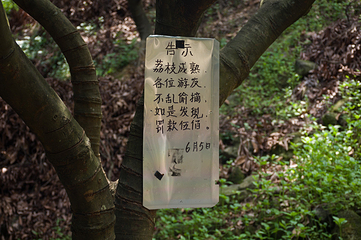 告示
荔枝成熟，
各位游友，
不乱偷摘，
如是发现，
罚款伍佰。
6月5日